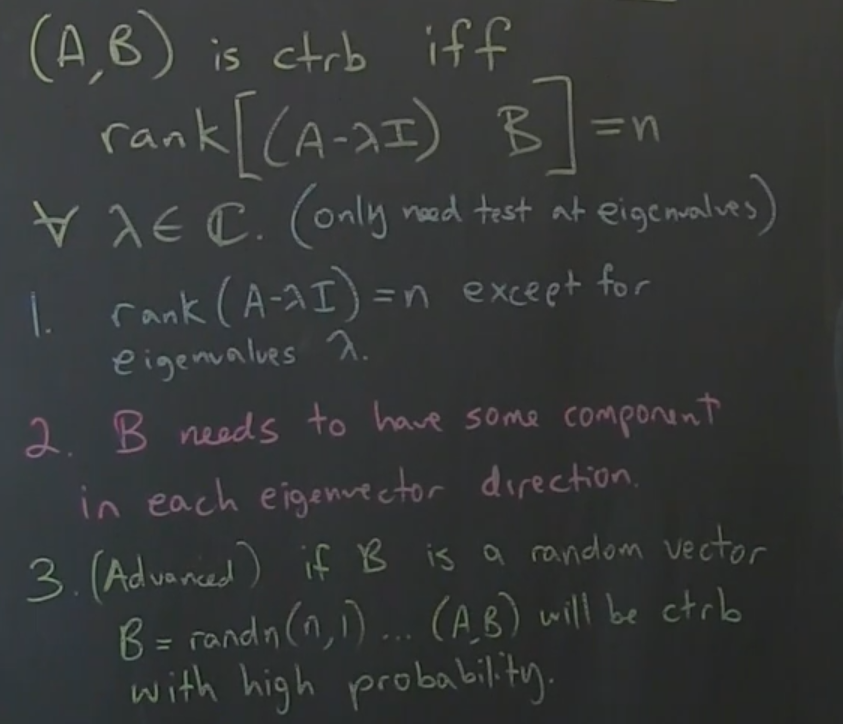 (A,B) is ctrb iff
rank[(A-λI) B]=n
∀ λ∈ ℂ. (only need test at eigenvalues)
1. rank(A-λI)=n except for
eigenvalues λ.
2. B needs to have some component
in each eigenvector direction.
3. (Advanced) if B is a random vector
B = randn(n,1) ... (A,B) will be ctrb
with high probability.